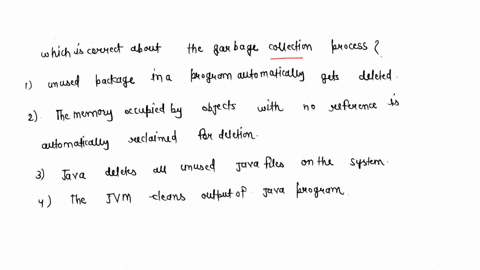 which is correct about the garbage collection process?
1) unused package in a program automatically gets deleted.
2) The memory occupied by objects with no reference is
automatically reclaimed for deletion.
3) Java deletes all unused java files on the system.
4) The JVM cleans output of java program.